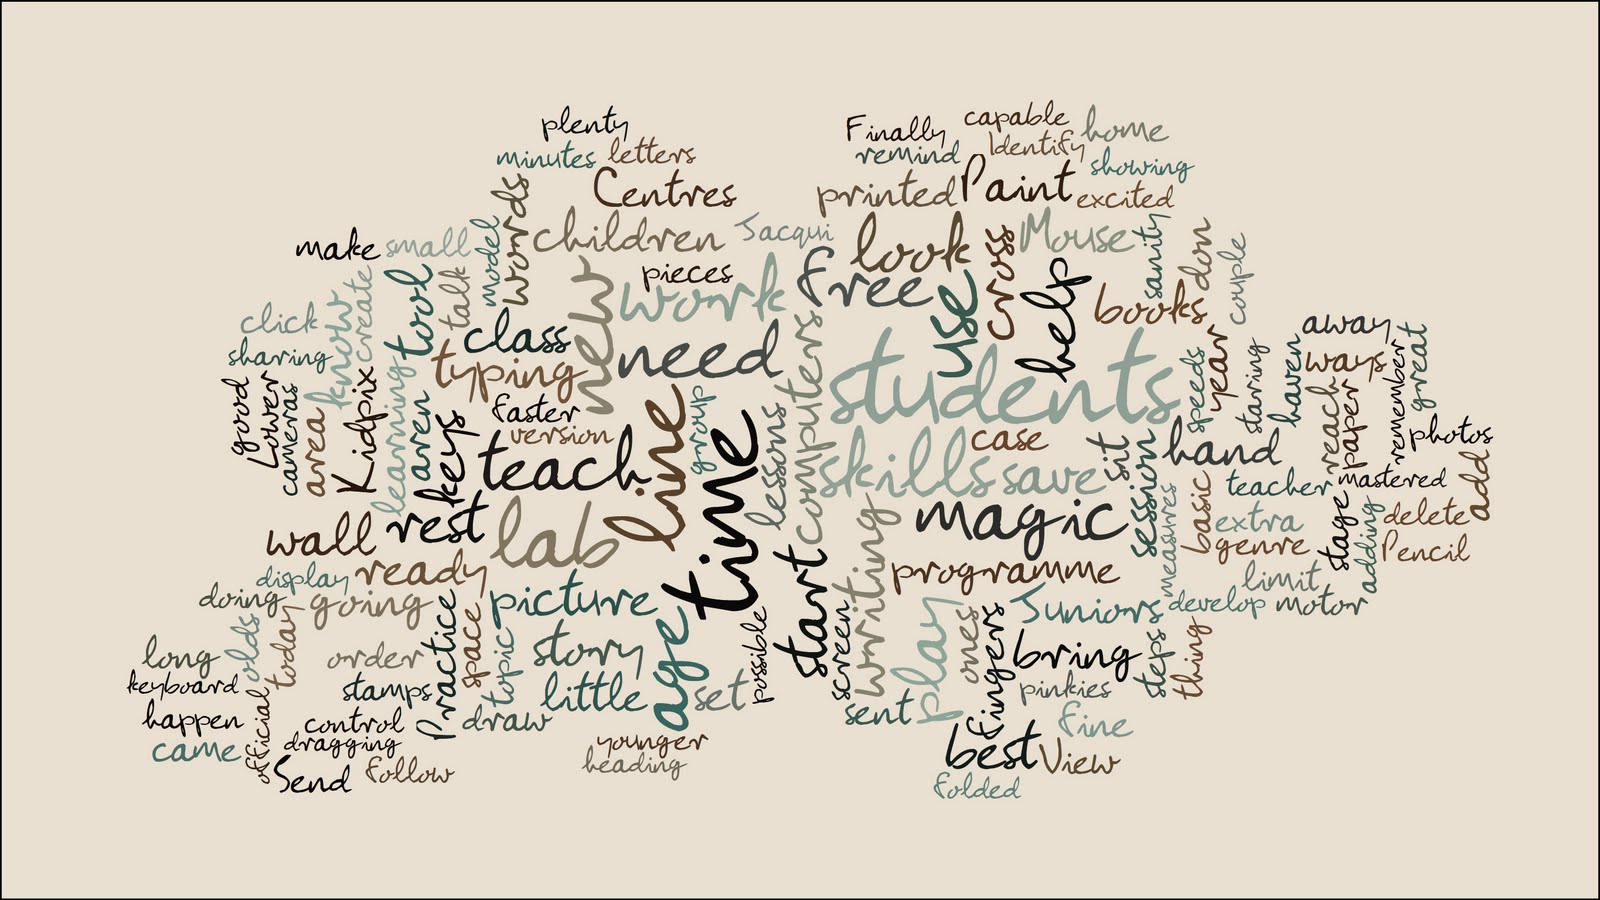 plenty
minutes letters
Centres
words
children
Jacqui
make small
model
pieces
Finally capable home
remind Identify
showing
printed Paint excited
look cross Mouse
sanity don
couple
click
know create
tool talk
class
new work
free use help
books
sharing
typing
need
computers
students
year
speeds
staring
haven
away
ways
great
remember
good Lower cameras
area Kidpix learning aren keys
faster
version
teach
line
group
time
lessons
skills
case
save
sit
session
hand
reach paper
photos
teacher mastered
add
wall
rest
lab
start
writing
magic
measures
basic extra
genre
stage
adding
delete
Pencil
display ready
doing going
olds today
Practice space
picture
topic
story
little
age
set
possible
screen
programme
play
ones
fingers
Juniors
develop
limit
motor
bring
steps
thing
pinkies
long
keyboard
happen
came
official
order
stamps
draw
control
dragging
Send follow
younger
heading
sent
fine
best View
folded